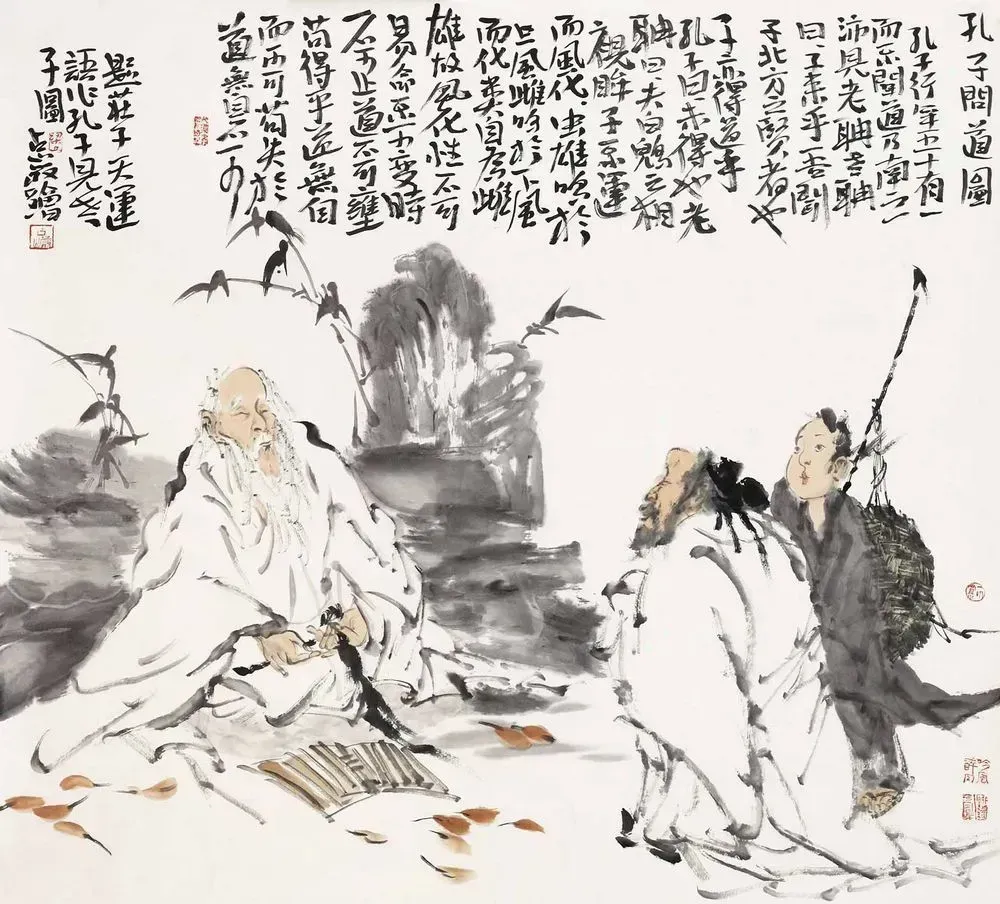 孔子問道圖
孔子行年五十有一
而不聞道乃南之
沛見老聃老聃
曰子來乎吾聞
子北方之賢者也
子亦得道乎
孔子曰未得也老
聃曰夫白鶂之相
視眸子不運
而風化虫雄鳴於
上風雌鳴於下風
而化類自為雌
雄故風化性不可
易命不可變時
不可止道不可壅
苟得乎道無自
而不可苟失於
道無自而可
莊子天運
語作孔子見老
子圖 占巖繪